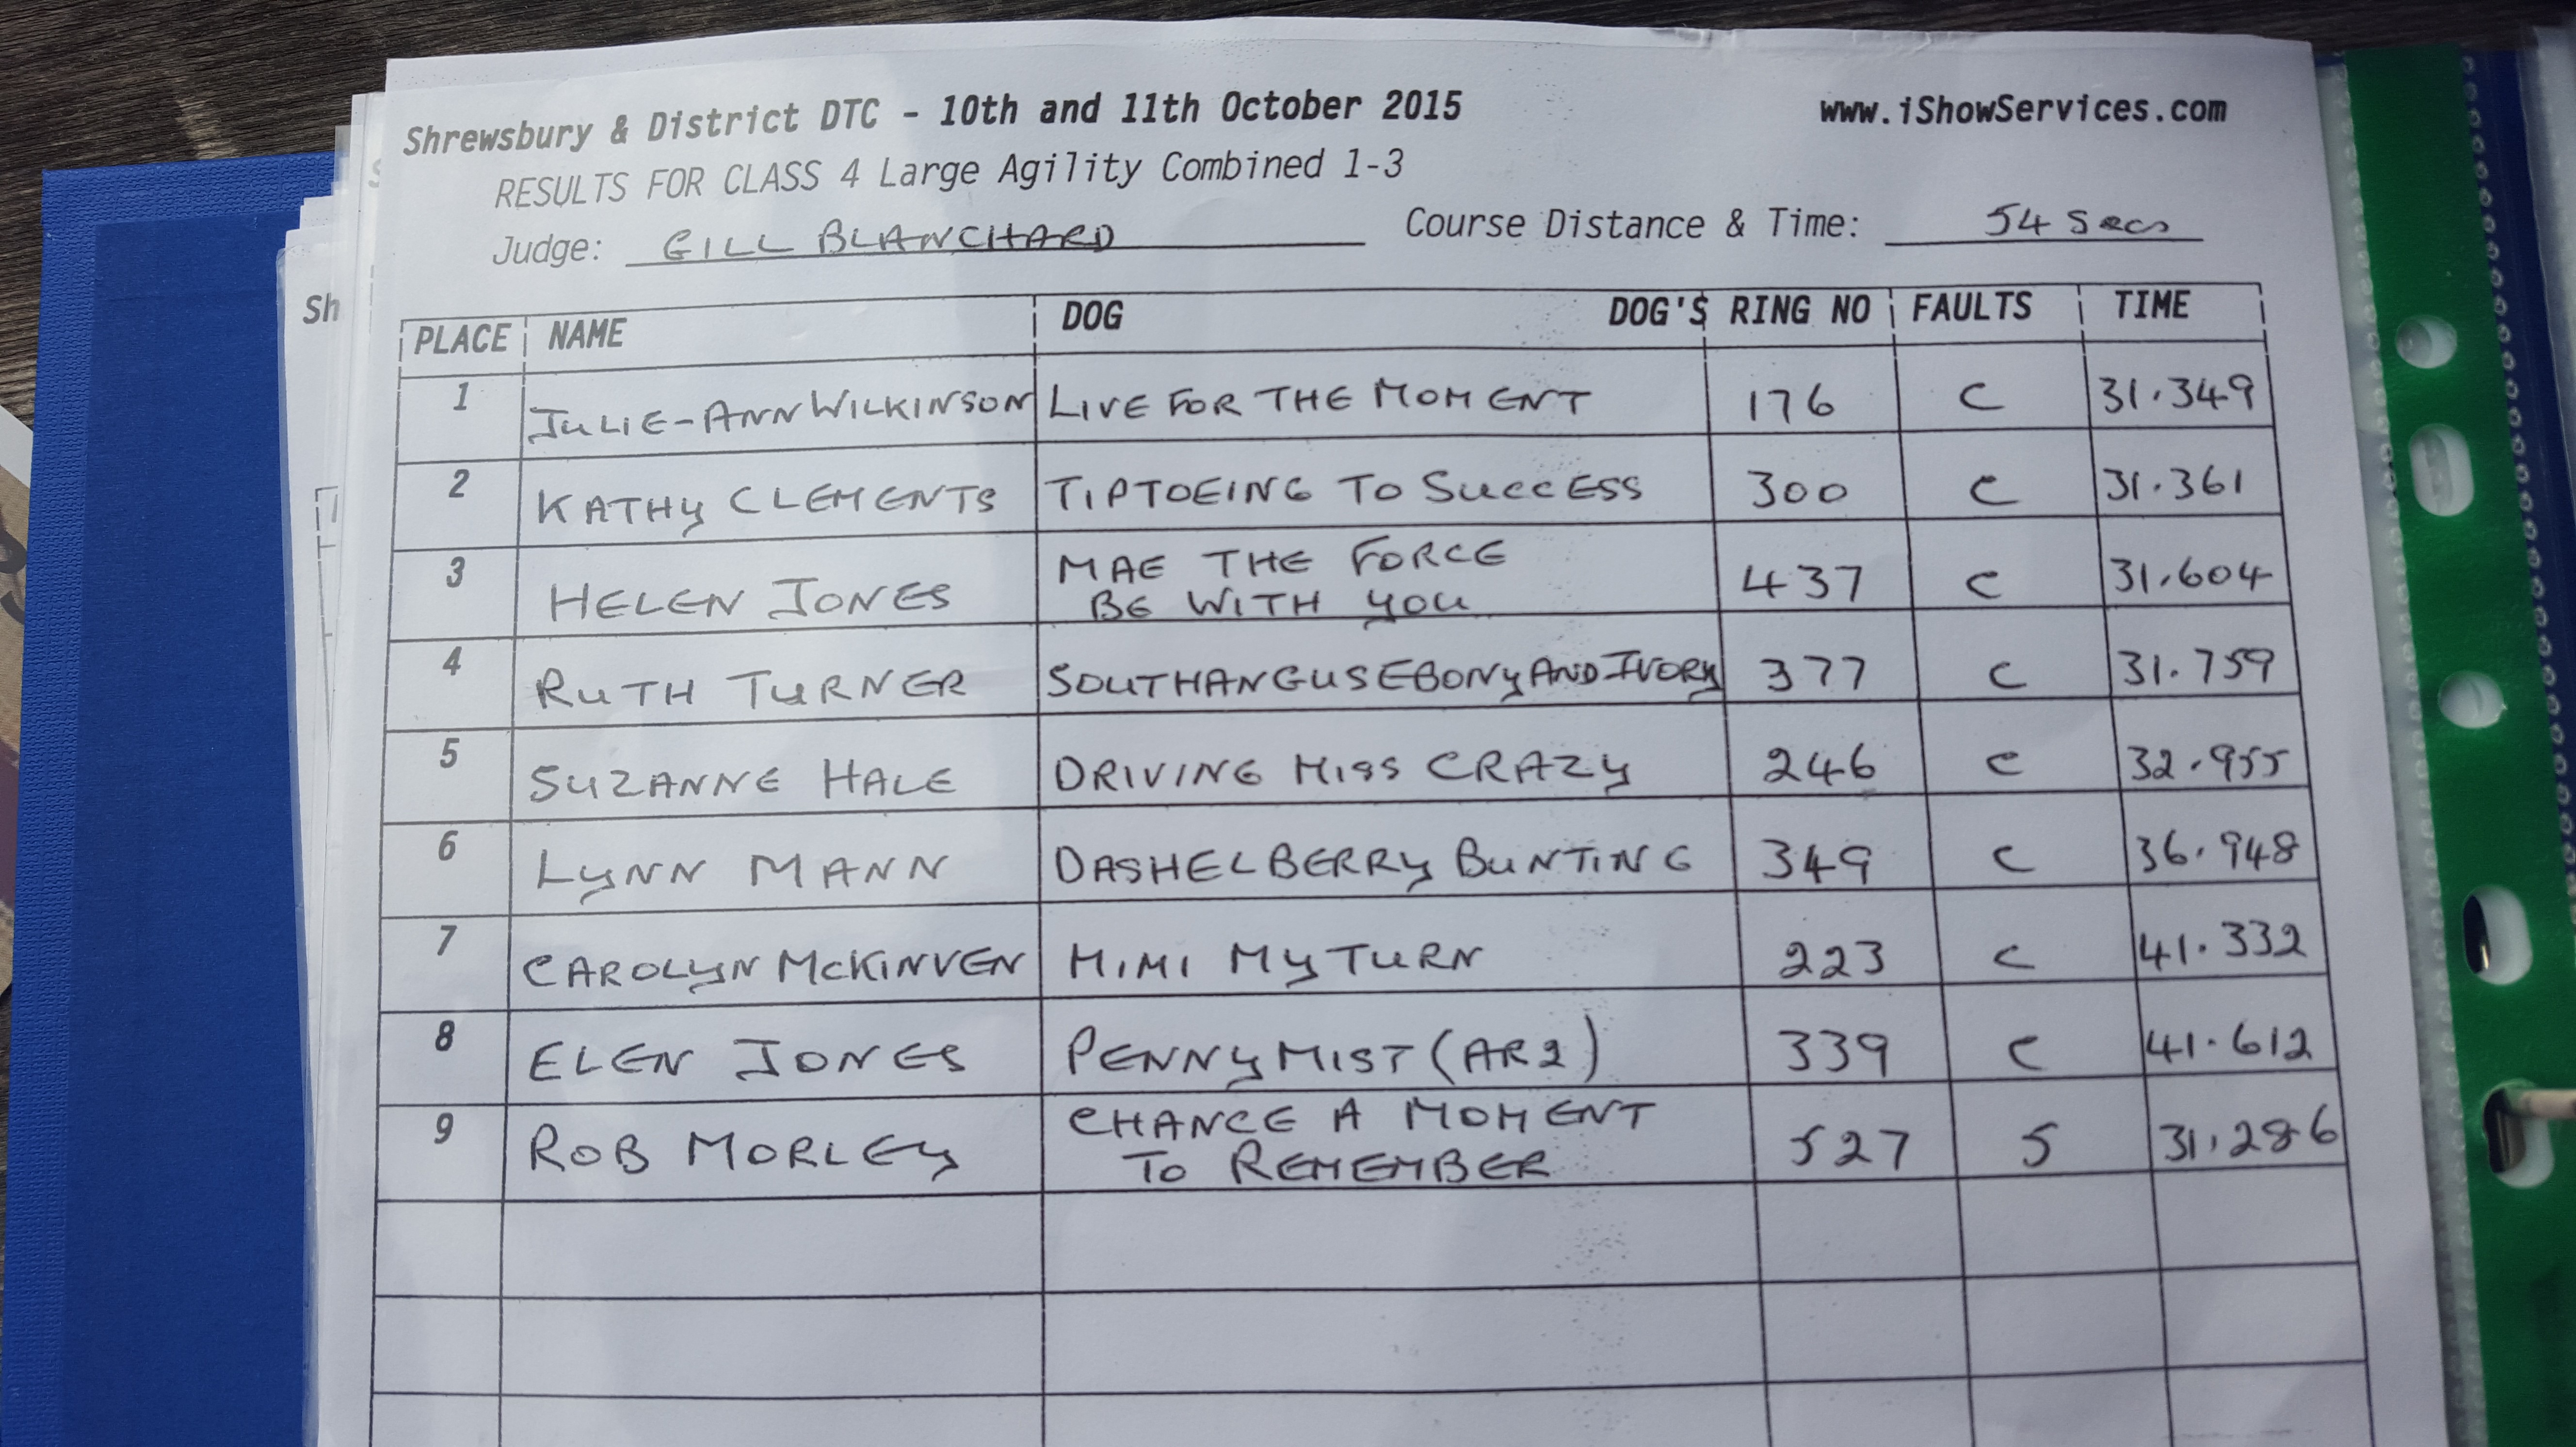 Shrewsbury & District DTC - 10th and 11th October 2015 www.iShowServices.com
RESULTS FOR CLASS 4 Large Agility Combined 1-3
Judge: GILL BLANCHARD Course Distance & Time: 54 Secs
Sh
PLACE NAME DOG DOG'S RING NO FAULTS TIME
1 JULIE-ANN WILKINSON LIVE FOR THE MOMENT 176 C 31.349
2 KATHY CLEMENTS TIPTOEING TO SUCCESS 300 C 31.361
3 HELEN JONES MAE THE FORCE
BE WITH YOU 437 C 31.604
4 RUTH TURNER SOUTHANGUS EBONY AND IVORY 377 C 31.759
5 SUZANNE HALE DRIVING MISS CRAZY 246 C 32.955
6 LYNN MANN DASHELBERRY BUNTING 349 C 36.948
7 CAROLYN MCKINVEN MIMI MY TURN 223 C 41.332
8 ELEN JONES PENNY MIST (AR2) 339 C 41.612
9 ROB MORLEY CHANCE A MOMENT
TO REMEMBER 527 5 31.286